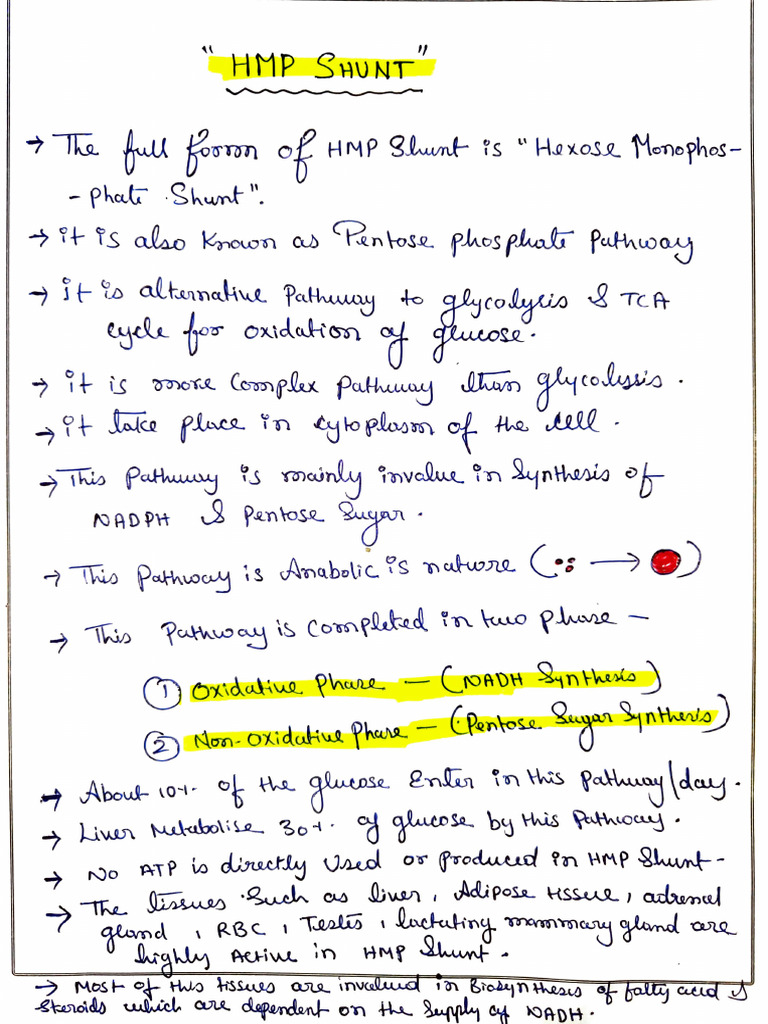 "HMP SHUNT"
→ The full form of HMP Shunt is "Hexose Monophos-
- phate Shunt".
→ it is also Known as Pentose phosphate Pathway
→ it is alternative Pathway to glycolysis & TCA
cycle for oxidation of glucose.
→ it is more Complex pathway than glycolysis.
→ it take place in cytoplasm of the cell.
→ This Pathway is mainly invalue in Synthesis of
NADPH & Pentose Sugar.
→ This Pathway is Anabolic is nature ( → )
→ This Pathway is Completed in two phase —
① Oxidative Phase — (NADH Synthesis)
② Non-Oxidative Phase — (Pentose Sugar Synthesis)
→ About 10% of the glucose Enter in this pathway/day.
→ Liver Metabolise 30% of glucose by this Pathway.
→ No ATP is directly Used or produced in HMP Shunt-
→ The tissues Such as liver, Adipose tissue, adrenal
gland, RBC, Testis, lactating mammary gland are
highly Active in HMP Shunt.
→ Most of this tissues are involued in Biosynthesis of fatty acid &
Steroids which are dependent on the Supply of NADH.